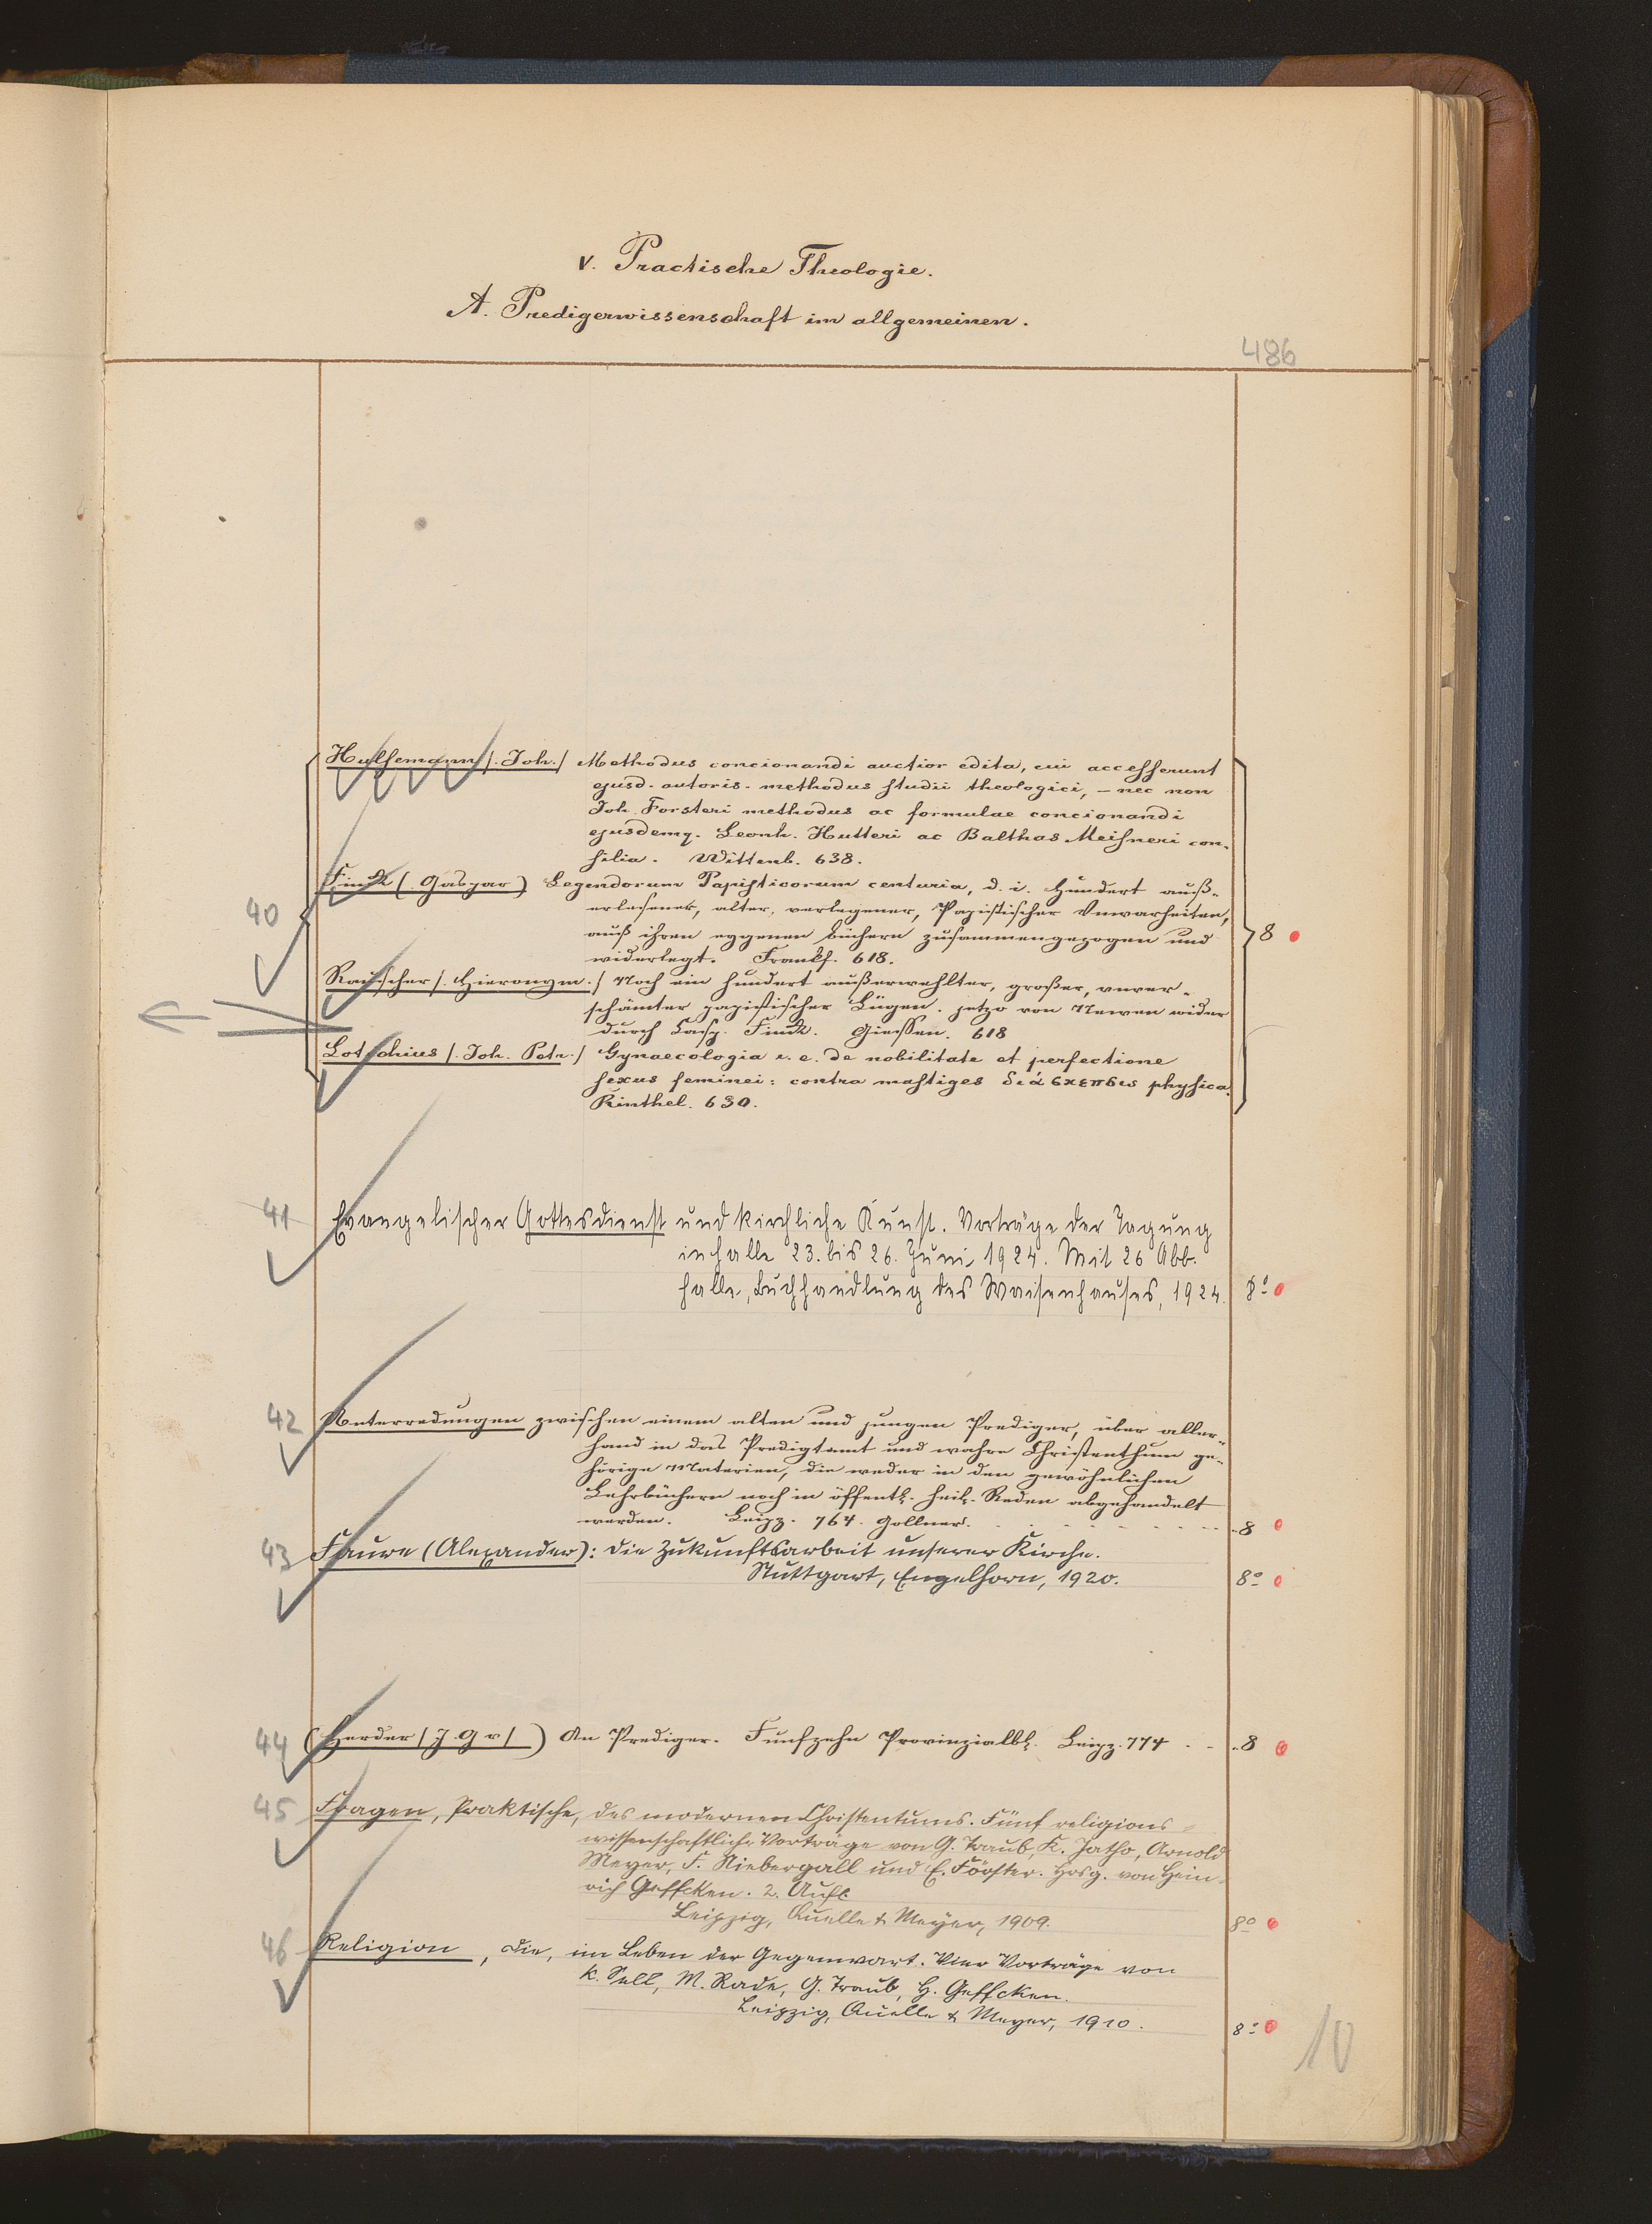 V. Practische Theologie.
A. Predigerwissenschaft im allgemeinen.
486
Hulsemann /. Joh./ Methodus concionandi auctior edita, cui accesserunt
ejusd. autoris. methodus studii theologici, – nec non
Joh. Forsteri methodus ac formulae concionandi
ejusdemq. Leonh. Hutteri ac Balthas Meisneri con-
silia. Wittenb. 638.
40
Finck (. Gaspar) Legendorum Papisticorum centuria, d. i. Hundert auß-
erlesener, alter, verlegener, Papistischer Vnwarheiten,
auß ihren eygenen büchern zusammengezogen und
8
widerlegt. Frankf. 618.
Rauscher /. Hieronym./ Noch ein hundert außerwehlter, großer, unver-
schämter papistischer Lügen. jetzo von Newen wider
durch Casp. Finck. Giessen. 618
Lotichius /. Joh. Petr./ Gynaecologia i. e. de nobilitate et perfectione
sexus feminei: contra mastiges διάσκεπσις physica.
Rinthel. 630.
41 Evangelischer Gottesdienst und kirchliche Kunst. Vorträge der Tagung
in Halle 23. bis 26. Juni 1924. Mit 26 Abb.
Halle, Buchhandlung des Waisenhauses, 1924. 8°
42 Unterredungen zwischen einem alten und jungen Prediger, über aller-
hand in das Predigtamt und wahre Christenthum ge-
hörige Materien, die weder in den gewöhnlichen
Lehrbüchern noch in öffentl. heil. Reden abgehandelt
werden. Leipz. 764. Gollner. 8
43 Faure (Alexander): Die Zukunftsarbeit unserer Kirche.
Stuttgart, Engelhorn, 1920. 8°
44 (Herder / J G v /) An Prediger. Funfzehn Provinzialbl. Leipz. 774 8
45 Fragen, Praktische, des modernen Christentums. Fünf religions-
wissenschaftliche Vorträge von G. Traub, K. Jatho, Arnold
Meyer, F. Niebergall und E. Förster. Hrsg. von Hein-
rich Geffcken. 2. Aufl.
Leipzig, Quelle & Meyer, 1909. 8°
46 Religion, Die, im Leben der Gegenwart. Vier Vorträge von
K. Sell, M. Rade, G. Traub, H. Geffcken.
Leipzig, Quelle & Meyer, 1910. 8°
10